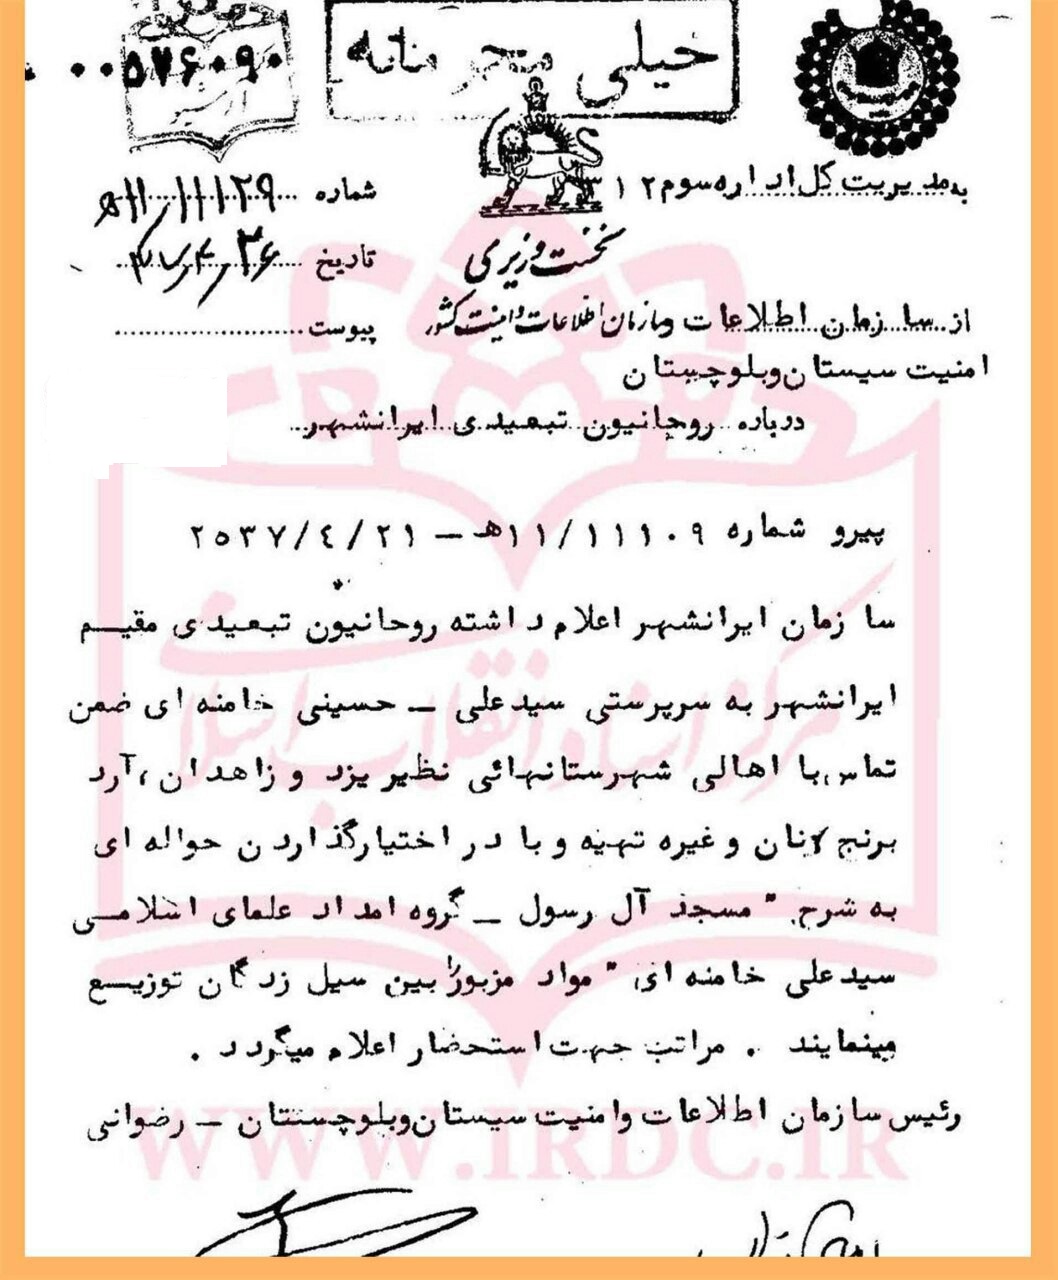 خیلی محرمانه
۰۰۵۷۶۰۹۰
به مدیریت کل اداره سوم ۳۱۲
شماره ۱۱/۱۱۱۲۹ه
نخست وزیری
تاریخ ۳۷/۴/۲۶
از سازمان اطلاعات و
سازمان اطلاعات و امنیت کشور
پیوست
امنیت سیستان وبلوچستان
درباره روحانیون تبعیدی ایرانشهر
پیرو شماره ۱۱/۱۱۱۰۹ هـ – ۲۵۳۷/۴/۲۱
سازمان ایرانشهر اعلام داشته روحانیون تبعیدی مقیم
ایرانشهر به سرپرستی سیدعلی – حسینی خامنه ای ضمن
تماس با اهالی شهرستانهائی نظیر یزد و زاهدان، آرد
برنج نان و غیره تهیه و با در اختیارگذاردن حواله ای
به شرح " مسجد آل رسول – گروه امداد علمای اسلامی
سیدعلی خامنه ای " مواد مزبور را بین سیل زدگان توزیع
مینمایند . مراتب جهت استحضار اعلام میگردد .
رئیس سازمان اطلاعات وامنیت سیستان وبلوچستان – رضوانی
مرکز اسناد انقلاب اسلامی
WWW.IRDC.IR